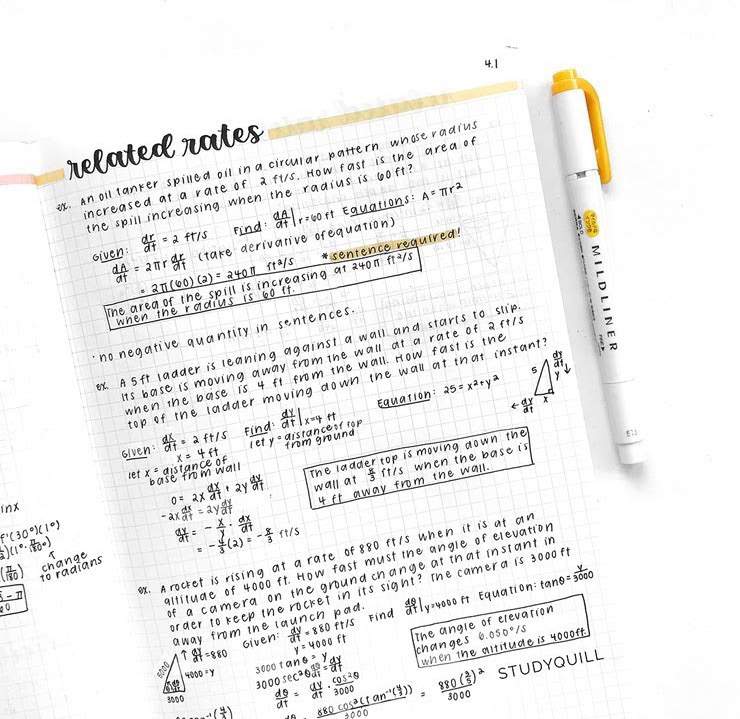 4.1
related rates
ex. An oil tanker spilled oil in a circular pattern whose radius
increased at a rate of 2 ft/s. How fast is the area of
the spill increasing when the radius is 60 ft?
Given: dr/dt = 2 ft/s Find: dA/dt | r=60 ft Equations: A = πr²
dA/dt = 2πr dr/dt (take derivative of equation)
= 2π(60)(2) = 240π ft²/s *sentence required!
The area of the spill is increasing at 240π ft²/s
when the radius is 60 ft.
· no negative quantity in sentences.
ex. A 5 ft ladder is leaning against a wall and starts to slip.
Its base is moving away from the wall at a rate of 2 ft/s
when the base is 4 ft from the wall. How fast is the
top of the ladder moving down the wall at that instant?
5 dy/dt ↓
y
← dx/dt x
Given: dx/dt = 2 ft/s Find: dy/dt | x=4 ft Equation: 25 = x²+y²
x = 4 ft
let y = distance of top
from ground
let x = distance of
base from wall
0 = 2x dx/dt + 2y dy/dt
-2x dx/dt = 2y dy/dt
dy/dt = - x/y · dx/dt
= - 4/3 (2) = - 8/3 ft/s
The ladder top is moving down the
wall at 8/3 ft/s when the base is
4 ft away from the wall.
ex. A rocket is rising at a rate of 880 ft/s when it is at an
altitude of 4000 ft. How fast must the angle of elevation
of a camera on the ground change at that instant in
order to keep the rocket in its sight? The camera is 3000 ft
away from the launch pad.
Given: dy/dt = 880 ft/s Find dθ/dt | y=4000 ft Equation: tanθ = y/3000
y = 4000 ft
↑ dy/dt = 880
5000
4000 = y
3000
3000 tanθ = y
3000 sec²θ dθ/dt = dy/dt
dθ/dt = dy/dt · cos²θ/3000
880 cos²(tan⁻¹(4/3))/3000 = 880(3/5)²/3000
The angle of elevation
changes 6.050°/s
when the altitude is 4000ft.
STUDYQUILL
inx
f'(30°)(1°)
(1°· π/180°)
↑
change
to radians
(π/180)
MILDLINER